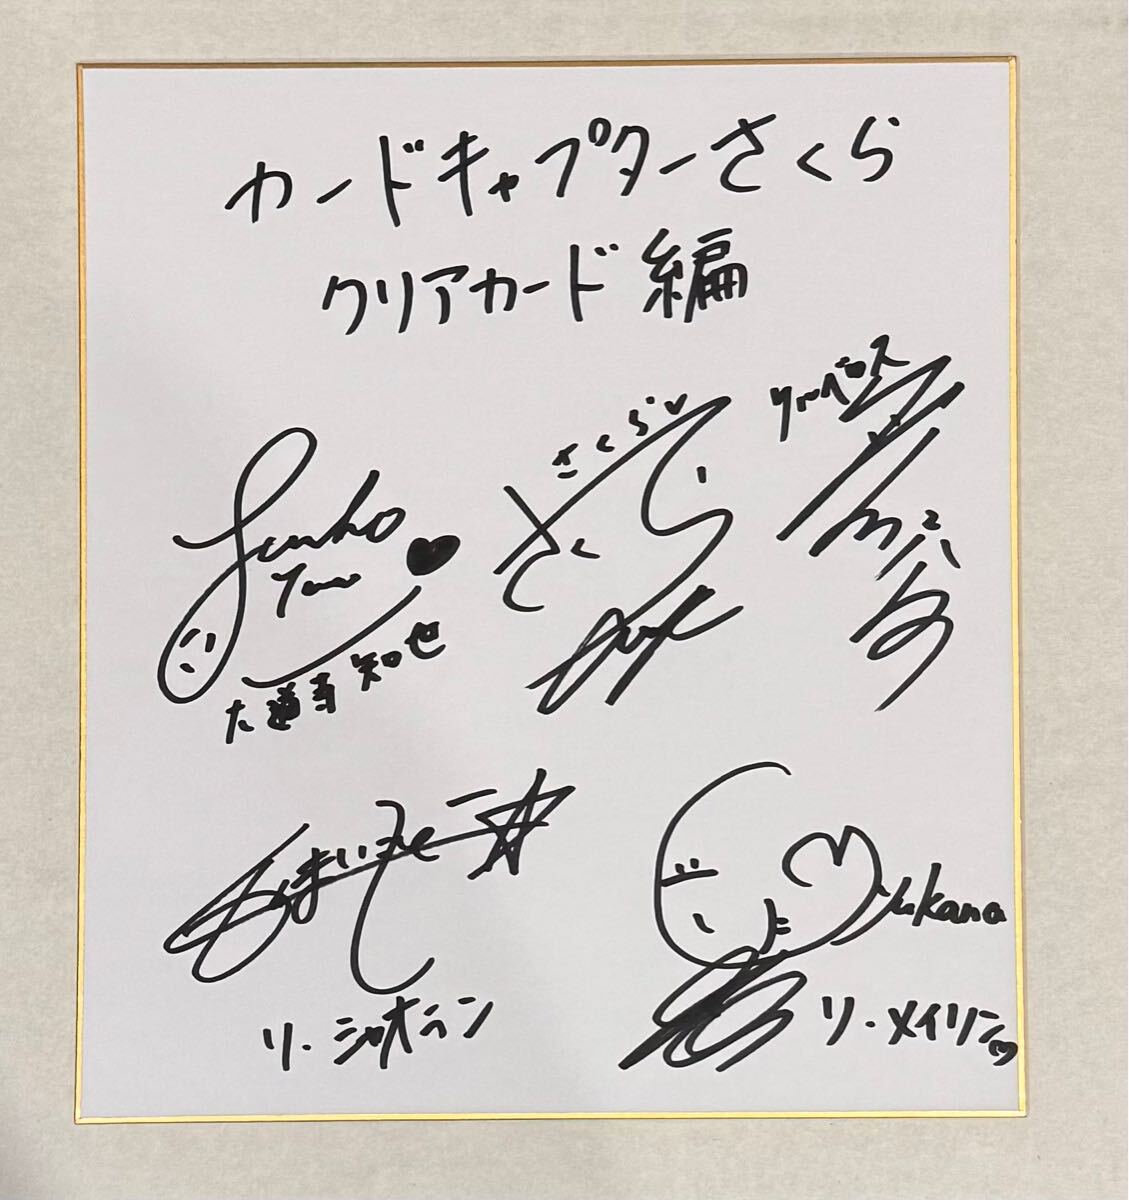 カードキャプターさくら
クリアカード編
さくら♥
ケルベロス
Junko
♥
大道寺知世
くまいもとこ
リ・シャオラン
Yukana
リ・メイリン♡